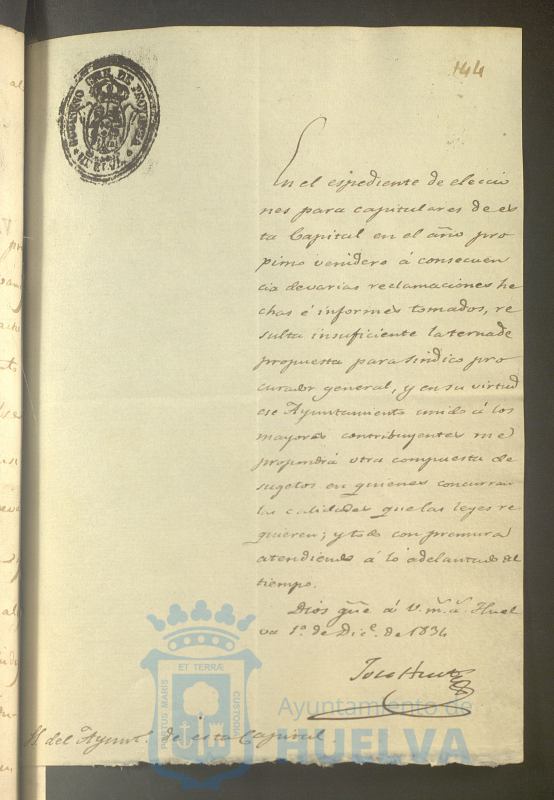 144
GOBIERNO
DE PROVINCIA
En el espediente de eleccio
nes para capitulares de es
ta Capital en el año pro
pimo venidero á consecuen
cia de varias reclamaciones he
chas é informes tomados, re
sulta insuficiente la terna de
propuesta para sindico pro
curador general, y en su virtud
ese Ayuntamiento unido á los
mayores contribuyentes me
propondrá otra compuesta de
sugetos en quienes concurran
las calidades que las leyes re
quieren; y todo con premura
atendiendo á lo adelantado del
tiempo.
Dios gũe á V. m.s a.s Huel
va 1.º de Dic.e de 1834
S. del Ayunt.o de esta Capital
PORTUS MARIS
ET TERRÆ
CUSTODIA
Ayuntamiento de
HUELVA